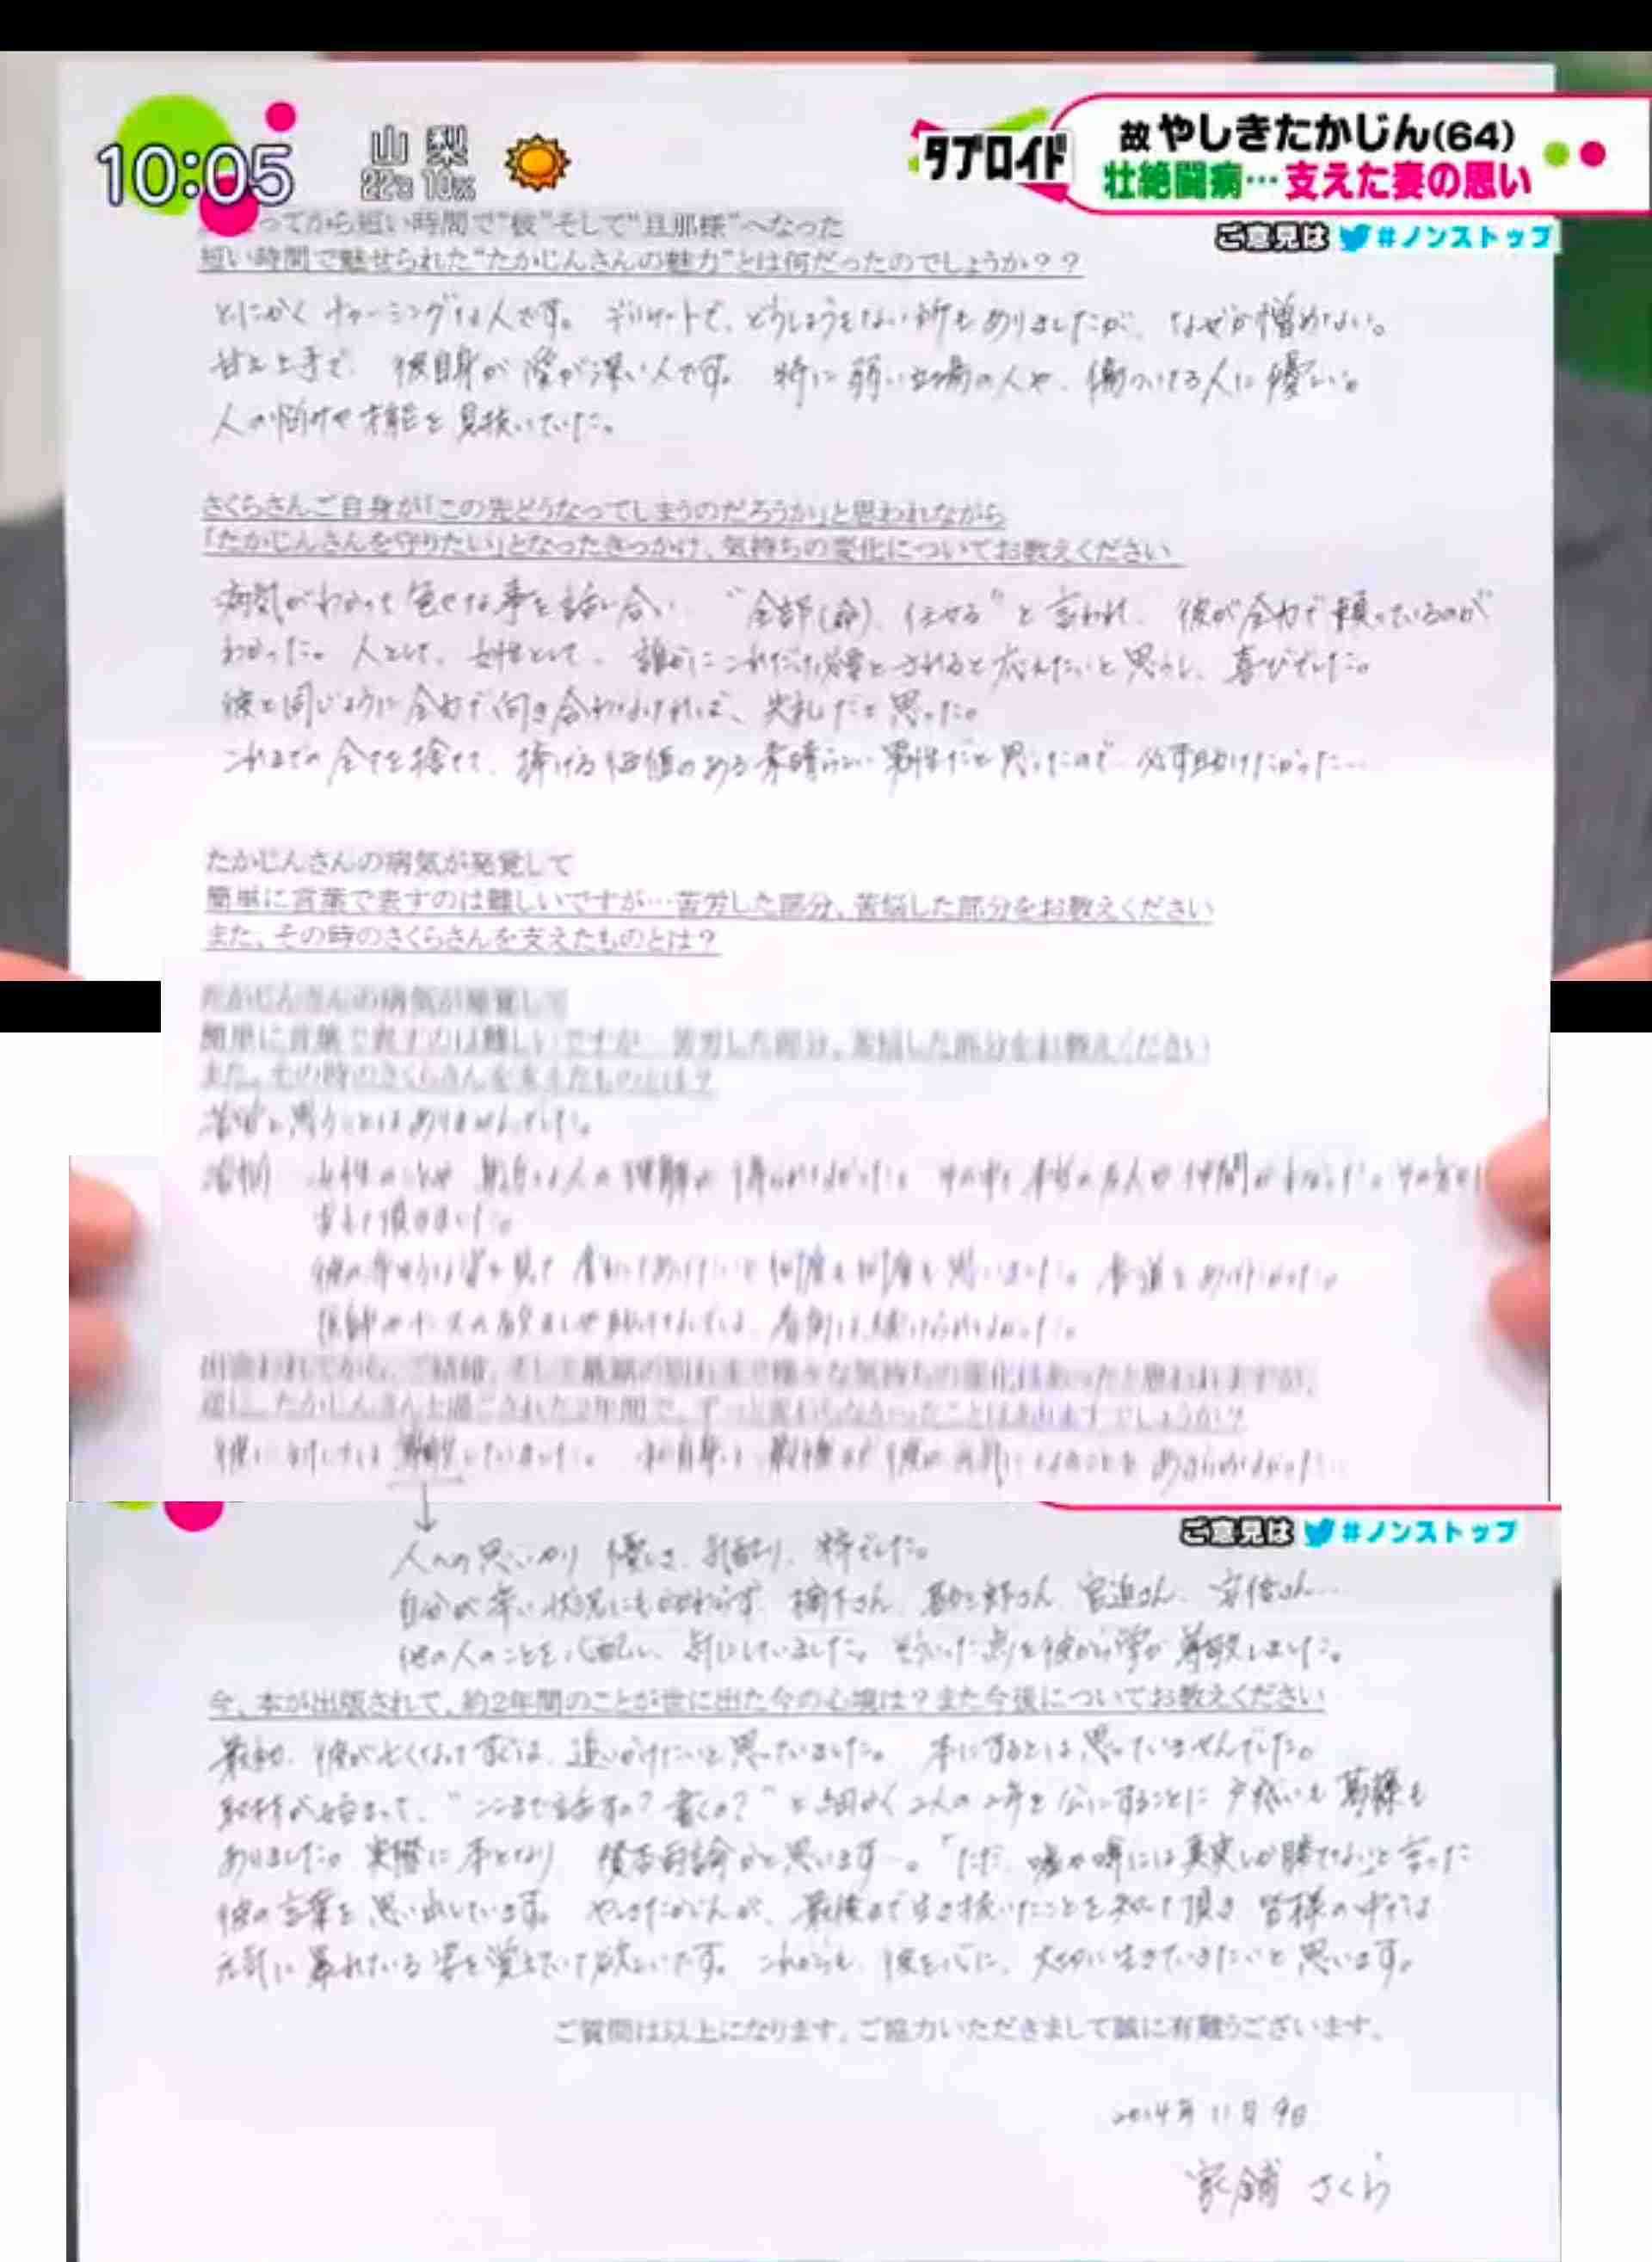 10:05
山梨
22℃ 10%
タブロイド
故 やしきたかじん(64)
壮絶闘病…支えた妻の思い
ご意見は #ノンストップ
ってから短い時間で"彼"そして"旦那様"へなった
短い時間で魅せられた"たかじんさんの魅力"とは何だったのでしょうか？？
とにかくチャーミングな人です。デリケートで、どうしようもない所もありましたが、なぜか憎めない。
甘え上手で、彼自身が愛が深い人です。特に弱い立場の人や、傷つける人に優しい。
人の悩みや才能を見抜いていた。
さくらさんご自身が「この先どうなってしまうのだろうか」と思われながら
「たかじんさんを守りたい」となったきっかけ、気持ちの変化についてお教えください
病気がわかって色々な事を話し合い "全部(命)、任せる"と言われ、彼が全力で頼っているのが
わかった。人として、女性として、誰かにこれだけ必要とされると応えたいと思うし、喜びでした。
彼と同じように全力で向き合わなければ、失礼だと思った。
これまでの全てを捨てて、捧げる価値のある素晴らしい男性だと思ったので 必ず助けたかった…
たかじんさんの病気が発覚して
簡単に言葉で表すのは難しいですが…苦労した部分、苦悩した部分をお教えください
また、その時のさくらさんを支えたものとは？
たかじんさんの病気が発覚して
簡単に言葉で表すのは難しいですが…苦労した部分、苦悩した部分をお教えください
また、その時のさくらさんを支えたものとは？
苦労と思うことはありませんでした。
苦悩 人の理解が得られなかった。その中で本当の友人や仲間がわかった。
支えて頂きました。
彼の辛そうな姿を見て 変わってあげたいと何度も何度も思いました。
医師やナースの励ましや助けなしでは、看病は続けられなかった。
出会われてから、ご結婚、そして最期の別れまで様々な気持ちの変化はあったと思われますが、
逆に、たかじんさんと過ごされた2年間で、ずっと変わらなかったことはありますでしょうか？
彼に対しては 尊敬していました。私自身も最後まで彼が元気になることをあきらめなかった…
↓
人への思いやり 優しさ、気配り、粋でした。
自分が辛い状況にもかかわらず、橋下さん、勘三郎さん、宮迫さん、
他の人のことを心配し、気にしていました。そういった点を彼から学び 尊敬しました。
今、本が出版されて、約2年間のことが世に出た今の心境は？また今後についてお教えください
最初、彼が亡くなってすぐは、追いかけたいと思っていました。本にするとは思っていませんでした。
取材が始まって、"ここまで話すの？書くの？"と細かく2人の2年を公にすることに戸惑いも葛藤も
ありました。実際に本となり 賛否両論かと思います…。「ただ、嘘や噂には真実しか勝てない」と言った
彼の言葉を思い出しています。やしきたかじんが、最後まで生き抜いたことを知って頂き 皆様の中では
元気に暴れている姿を覚えていて欲しいです。これからも、彼を心に、大切に生きていきたいと思います。
ご質問は以上になります。ご協力いただきまして誠に有難うございます。
2014年11月9日
家鋪 さくら
ご意見は #ノンストップ